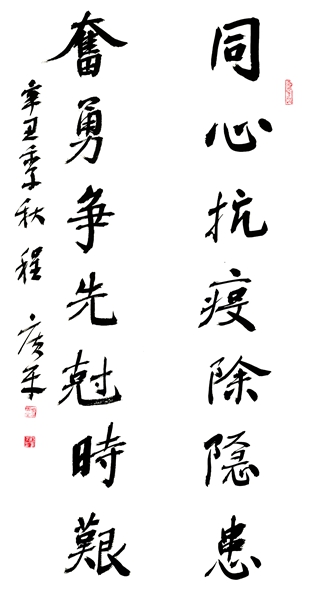 同心抗疫除隐患
奮勇争先尅時艱
辛丑季秋程广平